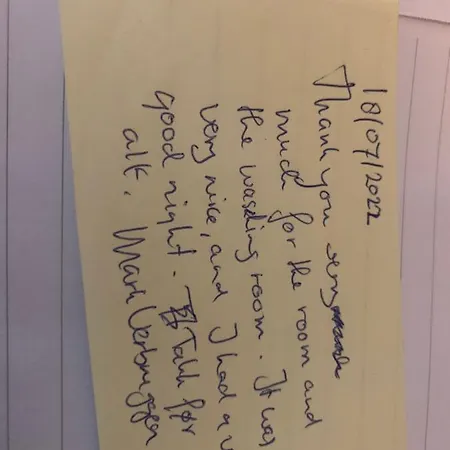 18/07/2022
Thank you very
much for the room and
the wasding room. It was
very nice, and I had a
good night. Talk for
alt. Mark Verbruggen